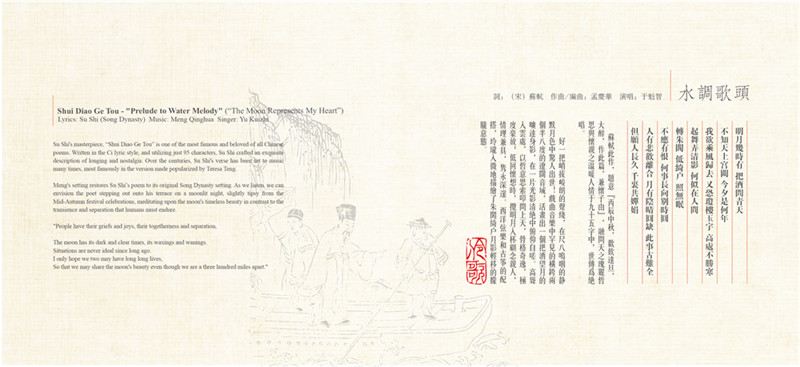 Shui Diao Ge Tou - "Prelude to Water Melody" (“The Moon Represents My Heart”)
Lyrics: Su Shi (Song Dynasty) Music: Meng Qinghua Singer: Yu Kuizhi
Su Shi's masterpiece, “Shui Diao Ge Tou” is one of the most famous and beloved of all Chinese
poems. Written in the Ci lyric style, and utilizing just 95 characters, Su Shi crafted an exquisite
description of longing and nostalgia. Over the centuries, Su Shi's verse has been set to music
many times, most famously in the version made popularized by Teresa Teng.
Meng's setting restores Su Shi's poem to its original Song Dynasty setting. As we listen, we can
envision the poet stepping out onto his terrace on a moonlit night, slightly tipsy from the
Mid-Autumn festival celebrations, meditating upon the moon's timeless beauty in contrast to the
transience and separation that humans must endure.
“People have their griefs and joys, their togetherness and separation.
The moon has its dark and clear times, its waxings and wanings.
Situations are never ideal since long ago.
I only hope we two may have long long lives,
So that we may share the moon's beauty even though we are a three hundred miles apart.”
水調歌頭
詞：（宋）蘇軾 作曲/編曲：孟慶華 演唱：于魁智
明月幾時有 把酒問青天
不知天上宮闕 今夕是何年
我欲乘風歸去 又恐瓊樓玉宇 高處不勝寒
起舞弄清影 何似在人間
轉朱閣 低綺户 照無眠
不應有恨 何事長向別時圓
人有悲歡離合 月有陰晴圓缺 此事古難全
但願人長久 千裏共嬋娟
蘇軾此作，題意「丙辰中秋，歡飲達旦，
大醉，作此篇，兼懷子由」，融問天之瑰麗哲
思與懷親之溫暖人情于九十五字中，世傳爲絶
唱。
好一把峭拔峻朗的聲綫，在尺八嗚咽的静
默月色中驚人出世！戲曲音樂中罕見的橫跨兩
個半八度的遼闊音域，活畫出一個把酒望月的
曠達身影，在一片光影清絶中俯仰自嗟。高聲
入雲處，以哲意思索叩問上天，骨格奇逸，極
度豪放，低回懷想時，攬明月入杯顧念親人，
情理兼具，隽永深遠。西洋弦樂和古筝的配
搭，玲瓏入微地描繪了朱閣綺户月影輕移的朦
朧意態